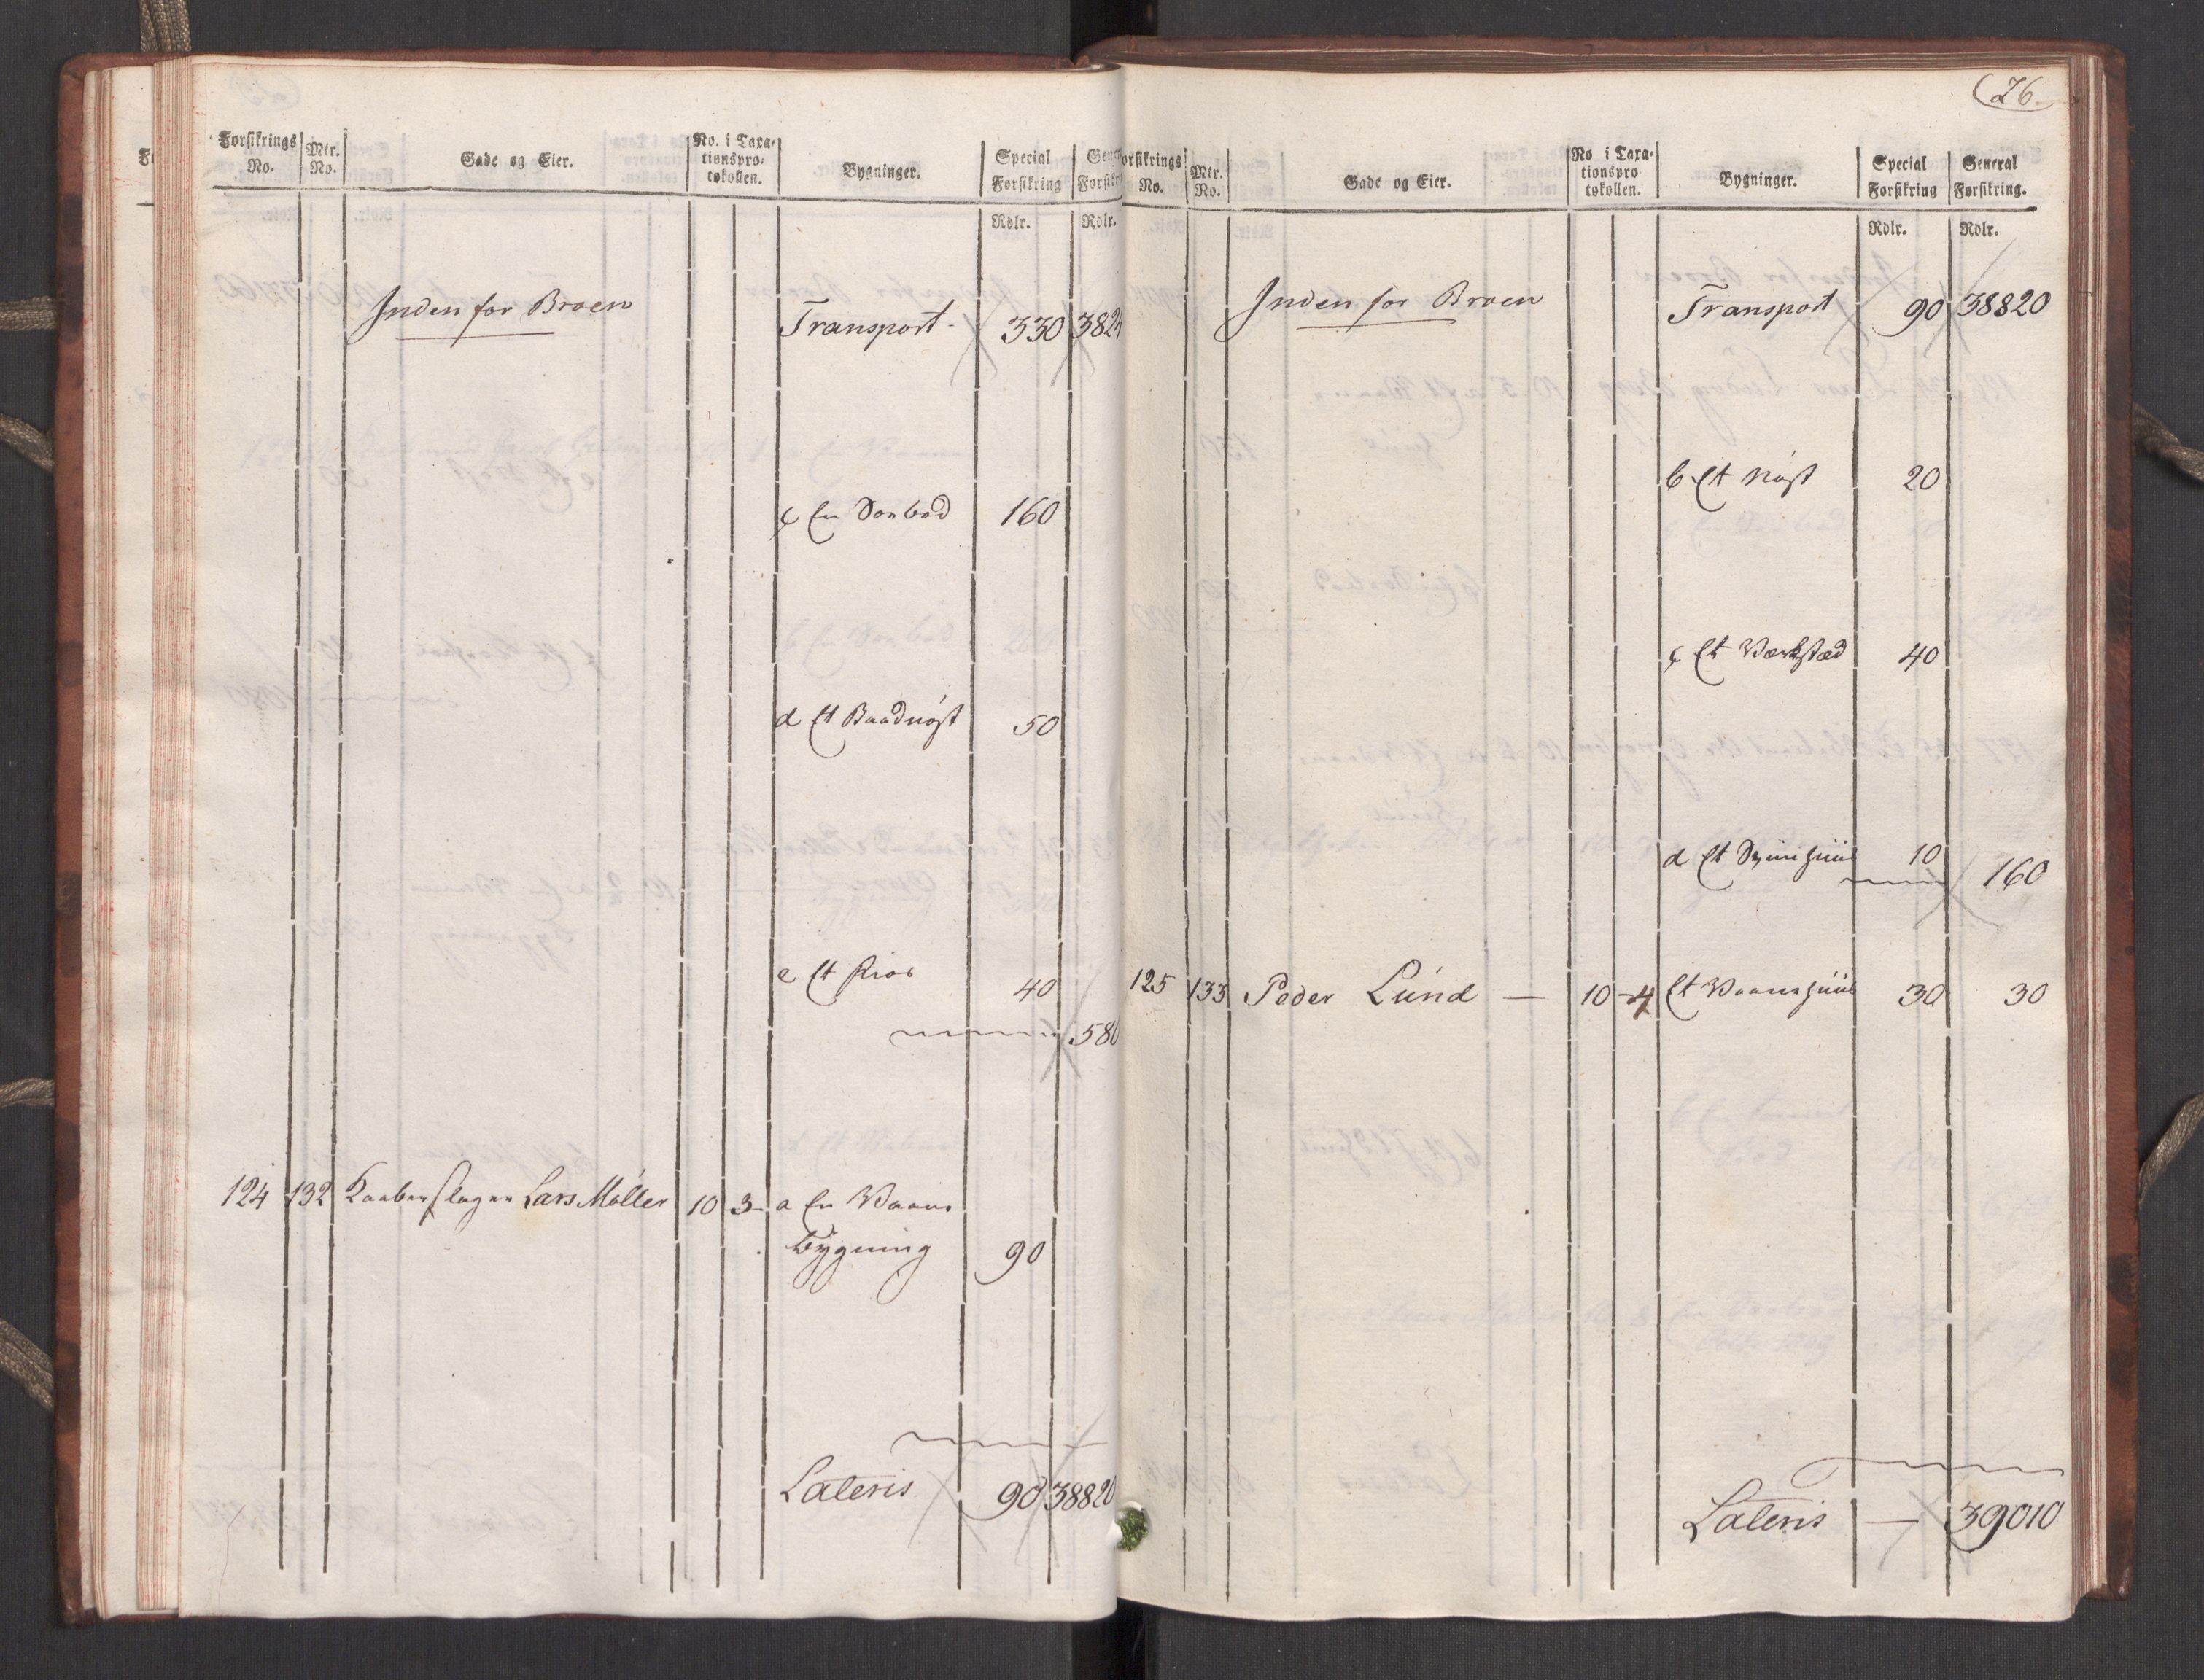 Forsikrings No.
Mtr. No.
Gade og Eier.
No. i Taxa-
tionspro-
tokollen.
Bygninger.
Special
Forsikring
Rdlr.
Rdlr.
Inden for Broen
Transport 330
c En Søebod 160
d Et Baadnøst 50
e Et 40
580
124 132 Kaaberslager Lars Møller 10 3 a En Vaanings
bygning 90
Lateris 90 38820
26
No.
Mtr. No.
Gade og Eier.
No i Taxa-
tionspro
tokollen.
Bygninger.
Special
Forsikring
General
Forsikring.
Rdlr.
Rdlr.
Inden for Broen
Transport 90 38820
b Et Nøst 20
c Et Værksted 40
d Et Sviinhuus 10
160
125 133 Peder Lund — 10 - 4 Et Vaaningshuus 30 30
Lateris — 39010